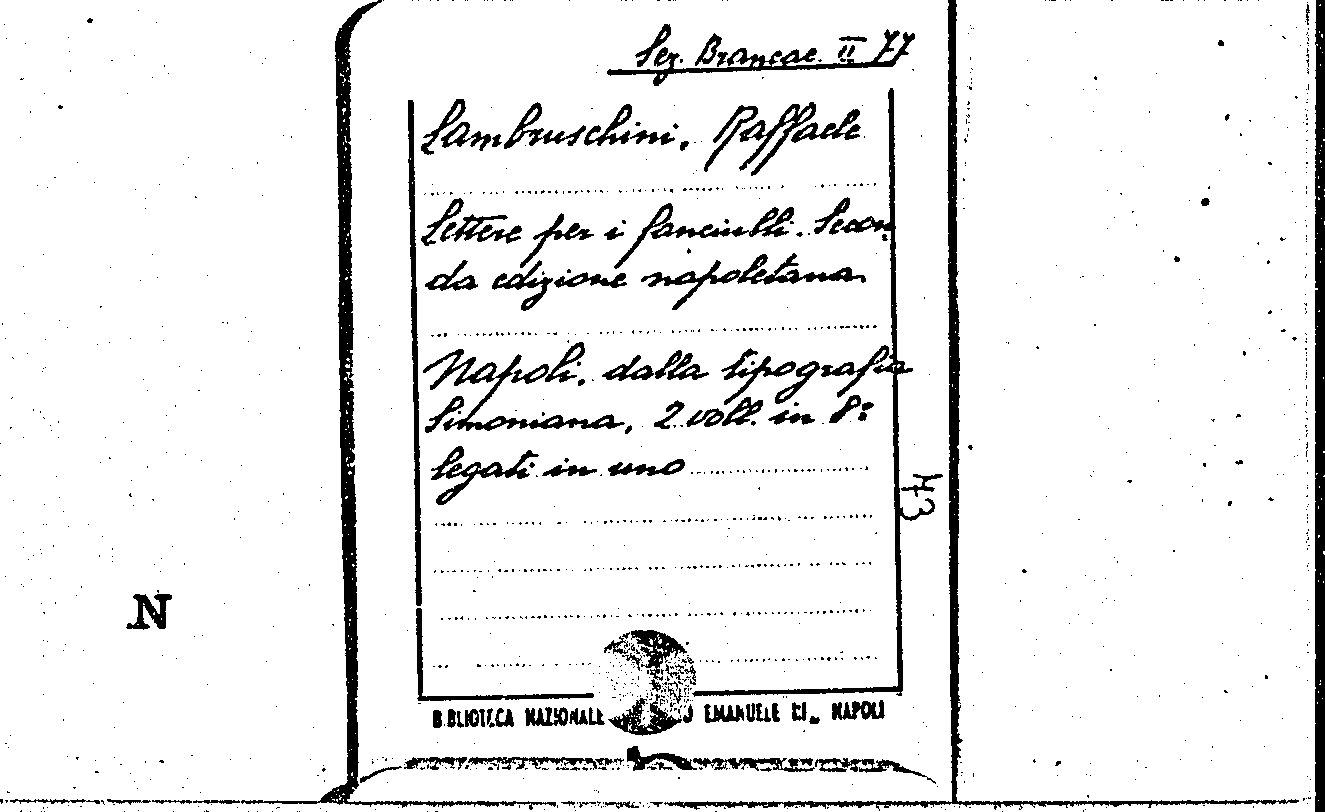 Sez. Brancac. II 77
Lambruschini, Raffaele
Lettere per i fanciulli. Secon
da edizione napoletana.
Napoli, dalla tipografia
Simoniana, 2 voll. in 8º
legati in uno
43
N
BIBLIOTECA NAZIONALE EMANUELE III„ NAPOLI